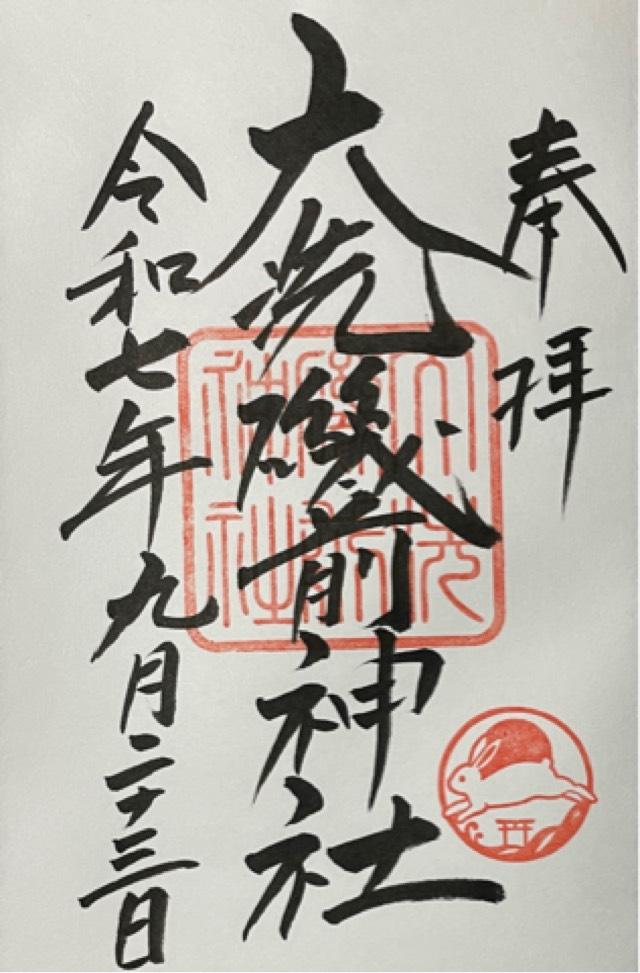 奉拝
大洗磯前神社
令和七年九月二十三日
大洗
磯前
神社